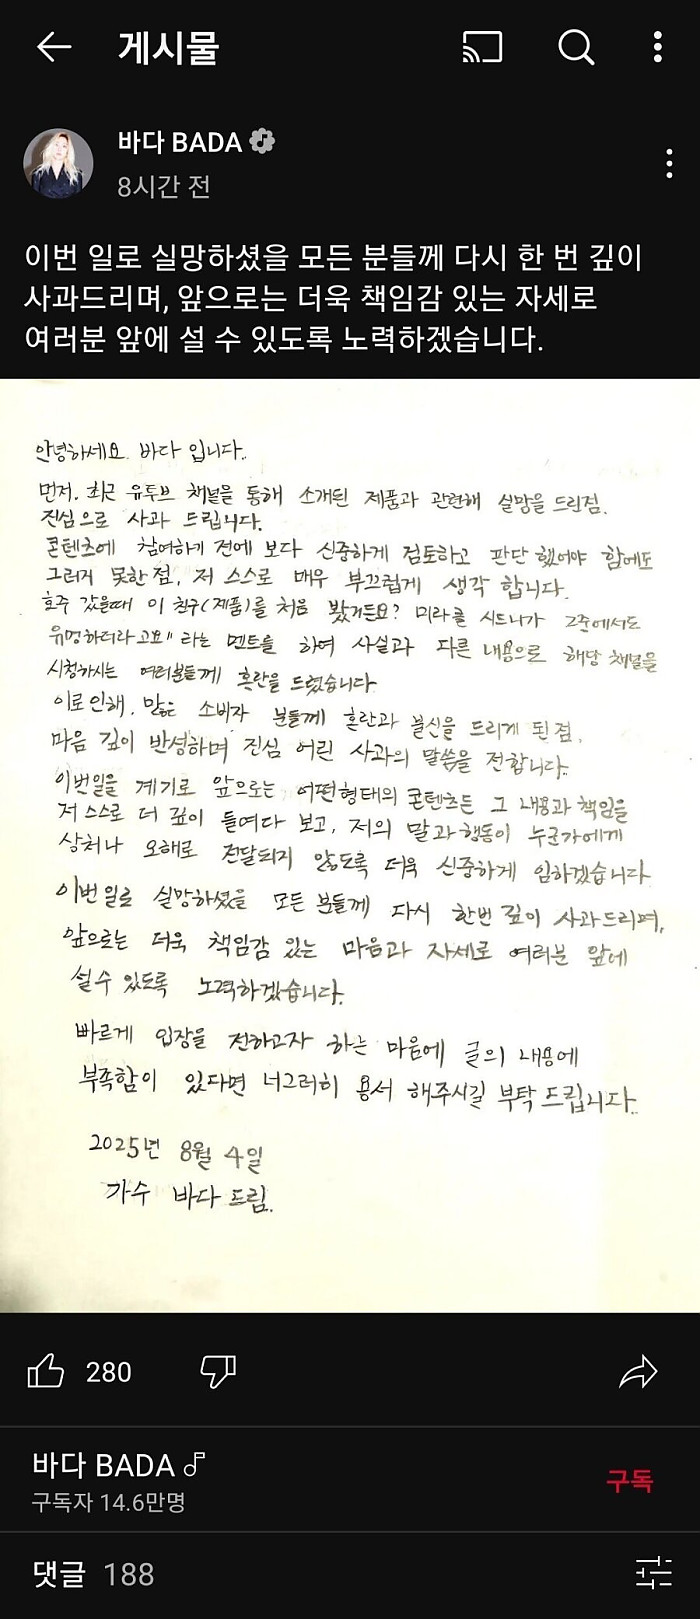 게시물
바다 BADA
8시간 전
이번 일로 실망하셨을 모든 분들께 다시 한 번 깊이
사과드리며, 앞으로는 더욱 책임감 있는 자세로
여러분 앞에 설 수 있도록 노력하겠습니다.
안녕하세요. 바다 입니다..
먼저. 최근 유투브 채널을 통해 소개된 제품과 관련해 실망을 드린점.
진심으로 사과 드립니다.
콘텐츠에 참여하기 전에 보다 신중하게 검토하고 판단 했어야 함에도
그러지 못한 점, 저 스스로 매우 부끄럽게 생각 합니다.
호주 갔을때 이 친구(제품)를 처음 봤거든요? 미라클 시드니가 호주에서도
유명하더라고요" 라는 멘트를 하여 사실과 다른 내용으로 해당 채널을
시청하시는 여러분들께 혼란을 드렸습니다.
이로인해. 많은 소비자 분들께 혼란과 불신을 드리게 된 점.
마음 깊이 반성하며 진심 어린 사과의 말씀을 전합니다..
이번일을 계기로 앞으로는 어떤형태의 콘텐츠든 그 내용과 책임을
저 스스로 더 깊이 들여다 보고, 저의 말과 행동이 누군가에게
상처나 오해로 전달되지 않도록 더욱 신중하게 임하겠습니다.
이번 일로 실망하셨을 모든 분들께 다시 한번 깊이 사과드리며,
앞으로는 더욱 책임감 있는 마음과 자세로 여러분 앞에
설수 있도록 노력하겠습니다.
빠르게 입장을 전하고자 하는 마음에 글의 내용에
부족함이 있다면 너그러히 용서 해주시길 부탁 드립니다..
2025년 8월 4일
가수 바다 드림.
280
바다 BADA
구독자 14.6만명
구독
댓글 188